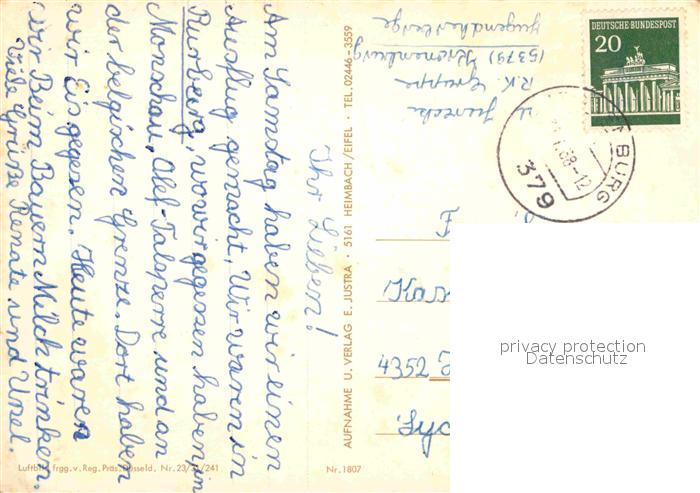 Ihr Lieben!
Am Samstag haben wir einen
Ausflug gemacht, Wir waren in
Burberg, wo wir gegessen haben, in
Monschau, Olef-Talsperre und an
der belgischen Grenze. Dort haben
wir Eis gegessen. Heute waren
wir Beim Bauern Milch trinken.
Viele Grüße Renate und Ursel.
Luftbild frgg. v. Reg. Präs. Düsseld. Nr. 23/31/241
Nr. 1807
AUFNAHME U. VERLAG E. JUSTRA · 5161 HEIMBACH/EIFEL · TEL. 02446-3559
R.K. Gruppe
(5379) Kronenburg
Jugendherberge
DEUTSCHE BUNDESPOST
20
BURG
68-12
379
F
Kas
4352
Syd
privacy protection
Datenschutz